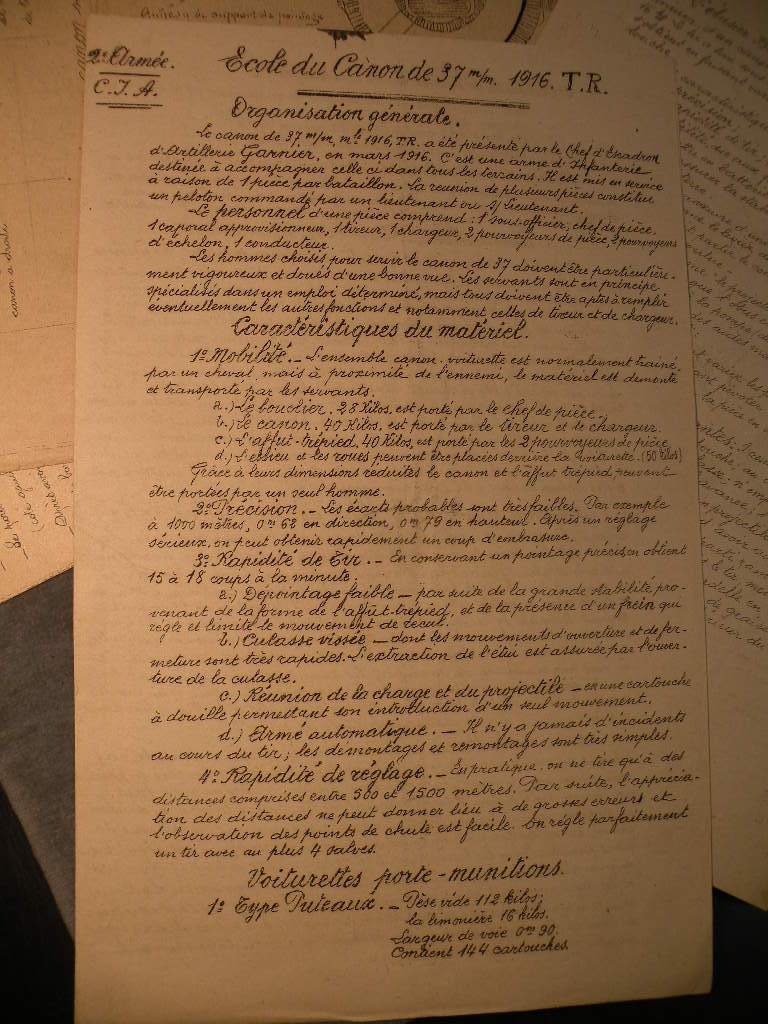 2e Armée.
C.I.A.
Ecole du Canon de 37 m/m. 1916. T.R.
Organisation générale.
Le canon de 37 m/m, mle 1916, T.R. a été présenté par le Chef d'Escadron
d'Artillerie Garnier, en mars 1916. C'est une arme d'Infanterie
destinée à accompagner celle ci dans tous les terrains. Il est mis en service
à raison de 1 pièce par bataillon. La réunion de plusieurs pièces constitue
un peloton commandé par un lieutenant ou S/ Lieutenant.
Le personnel d'une pièce comprend: 1 sous-officier, chef de pièce.
1 caporal approvisionneur, 1 tireur, 1 chargeur, 2 pourvoyeurs de pièce, 2 pourvoyeurs
d'échelon, 1 conducteur.
Les hommes choisis pour servir le canon de 37 doivent être particulière-
ment vigoureux et doués d'une bonne vue. Les servants sont en principe
spécialisés dans un emploi déterminé, mais tous doivent être aptes à remplir
éventuellement les autres fonctions et notamment celles de tireur et de chargeur.
Caractéristiques du matériel.
1º Mobilité. - L'ensemble canon-voiturette est normalement trainé
par un cheval mais à proximité de l'ennemi, le matériel est démonté
et transporté par les servants.
a.) Le bouclier. 28 Kilos. est porté par le chef de pièce.
b.) Le canon. 40 Kilos. est porté par le tireur et le chargeur.
c.) L'affut-trépied. 40 Kilos. est porté par les 2 pourvoyeurs de pièce
d.) L'essieu et les roues peuvent être placées derrière la voiturette. (50 kilos)
Grâce à leurs dimensions réduites le canon et l'affut trépied peuvent
être portées par un seul homme.
2º Précision. - Les écarts probables sont très faibles. Par exemple
à 1000 mètres, 0m 62 en direction, 0m 79 en hauteur. Après un réglage
sérieux, on peut obtenir rapidement un coup d'embrasure.
3º Rapidité de Tir. - En conservant un pointage précis on obtient
15 à 18 coups à la minute:
a.) Dépointage faible - par suite de la grande stabilité pro-
venant de la forme de l'affut-trépied, et de la présence d'un frein qui
règle et limite le mouvement de recul.
b.) Culasse vissée - dont les mouvements d'ouverture et de fer-
meture sont très rapides. L'extraction de l'étui est assurée par l'ouver-
ture de la culasse.
c.) Réunion de la charge et du projectile - en une cartouche
à douille permettant son introduction d'un seul mouvement.
d.) Armé automatique. - Il n'y a jamais d'incidents
au cours du tir; les démontages et remontages sont très simples.
4º Rapidité de réglage. - En pratique on ne tire qu'à des
distances comprises entre 500 et 1500 mètres. Par suite, l'apprécia-
tion des distances ne peut donner lieu à de grosses erreurs et
l'observation des points de chute est facile. On règle parfaitement
un tir avec au plus 4 salves.
Voiturettes porte-munitions.
1º Type Puteaux. - Pèse vide 112 kilos;
la limonière 16 kilos.
Largeur de voie 0m 90.
Contient 144 cartouches.